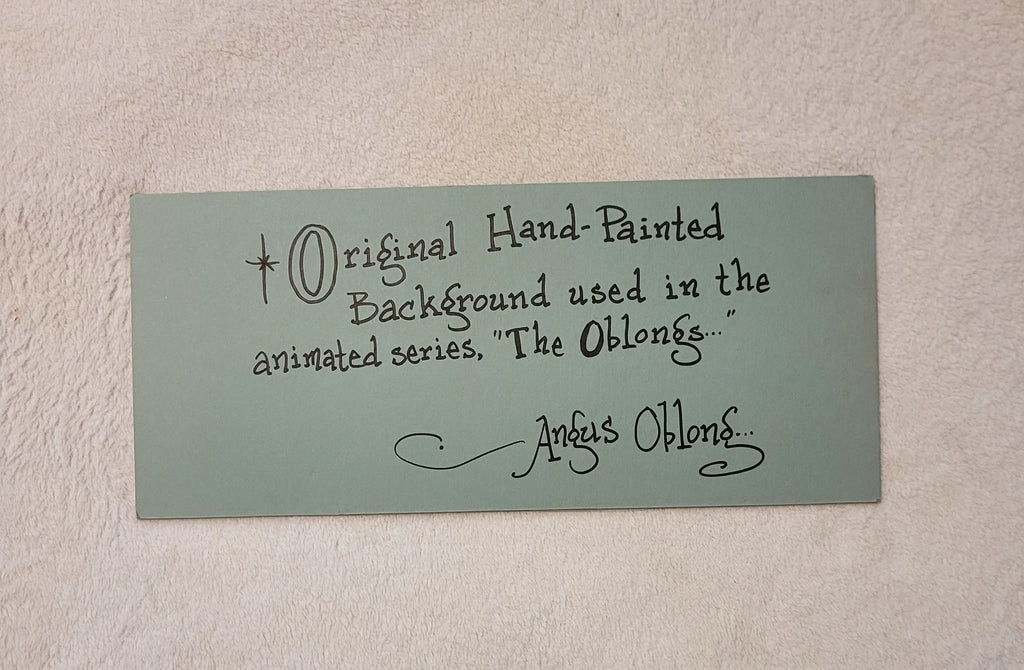 *Original Hand-Painted
Background used in the
animated series, "The Oblongs..."
Angus Oblong...